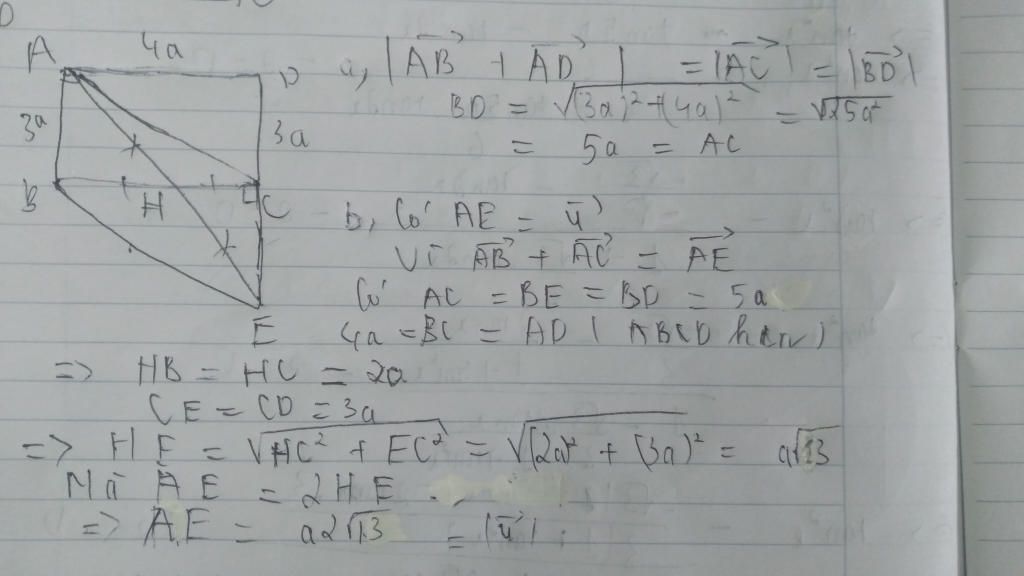 A 4a D
3a 3a
B H C
E
a, |AB→ + AD→| = |AC→| = |BD→|
BD = √(3a)² + (4a)² = √25a²
= 5a = AC
b, Có AE = u→
Vì AB→ + AC→ = AE→
Có AC = BE = BD = 5a
4a = BC = AD ( ABCD hcn )
=> HB = HC = 2a
CE = CD = 3a
=> HE = √HC² + EC² = √(2a)² + (3a)² = a√13
Mà AE = 2HE
=> AE = a2√13 = |u→|.